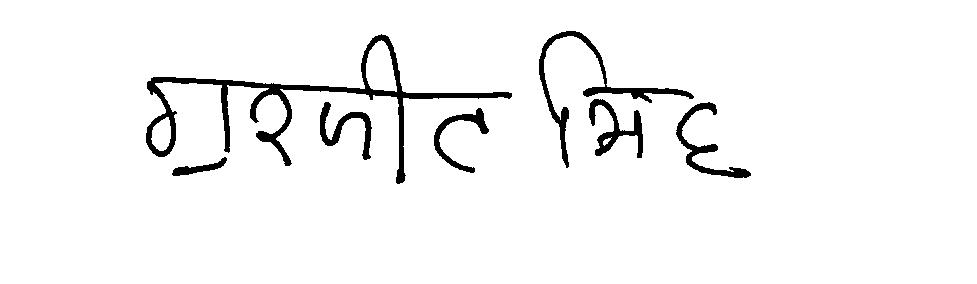 ਗੁਰਜੀਤ ਸਿੰਘ